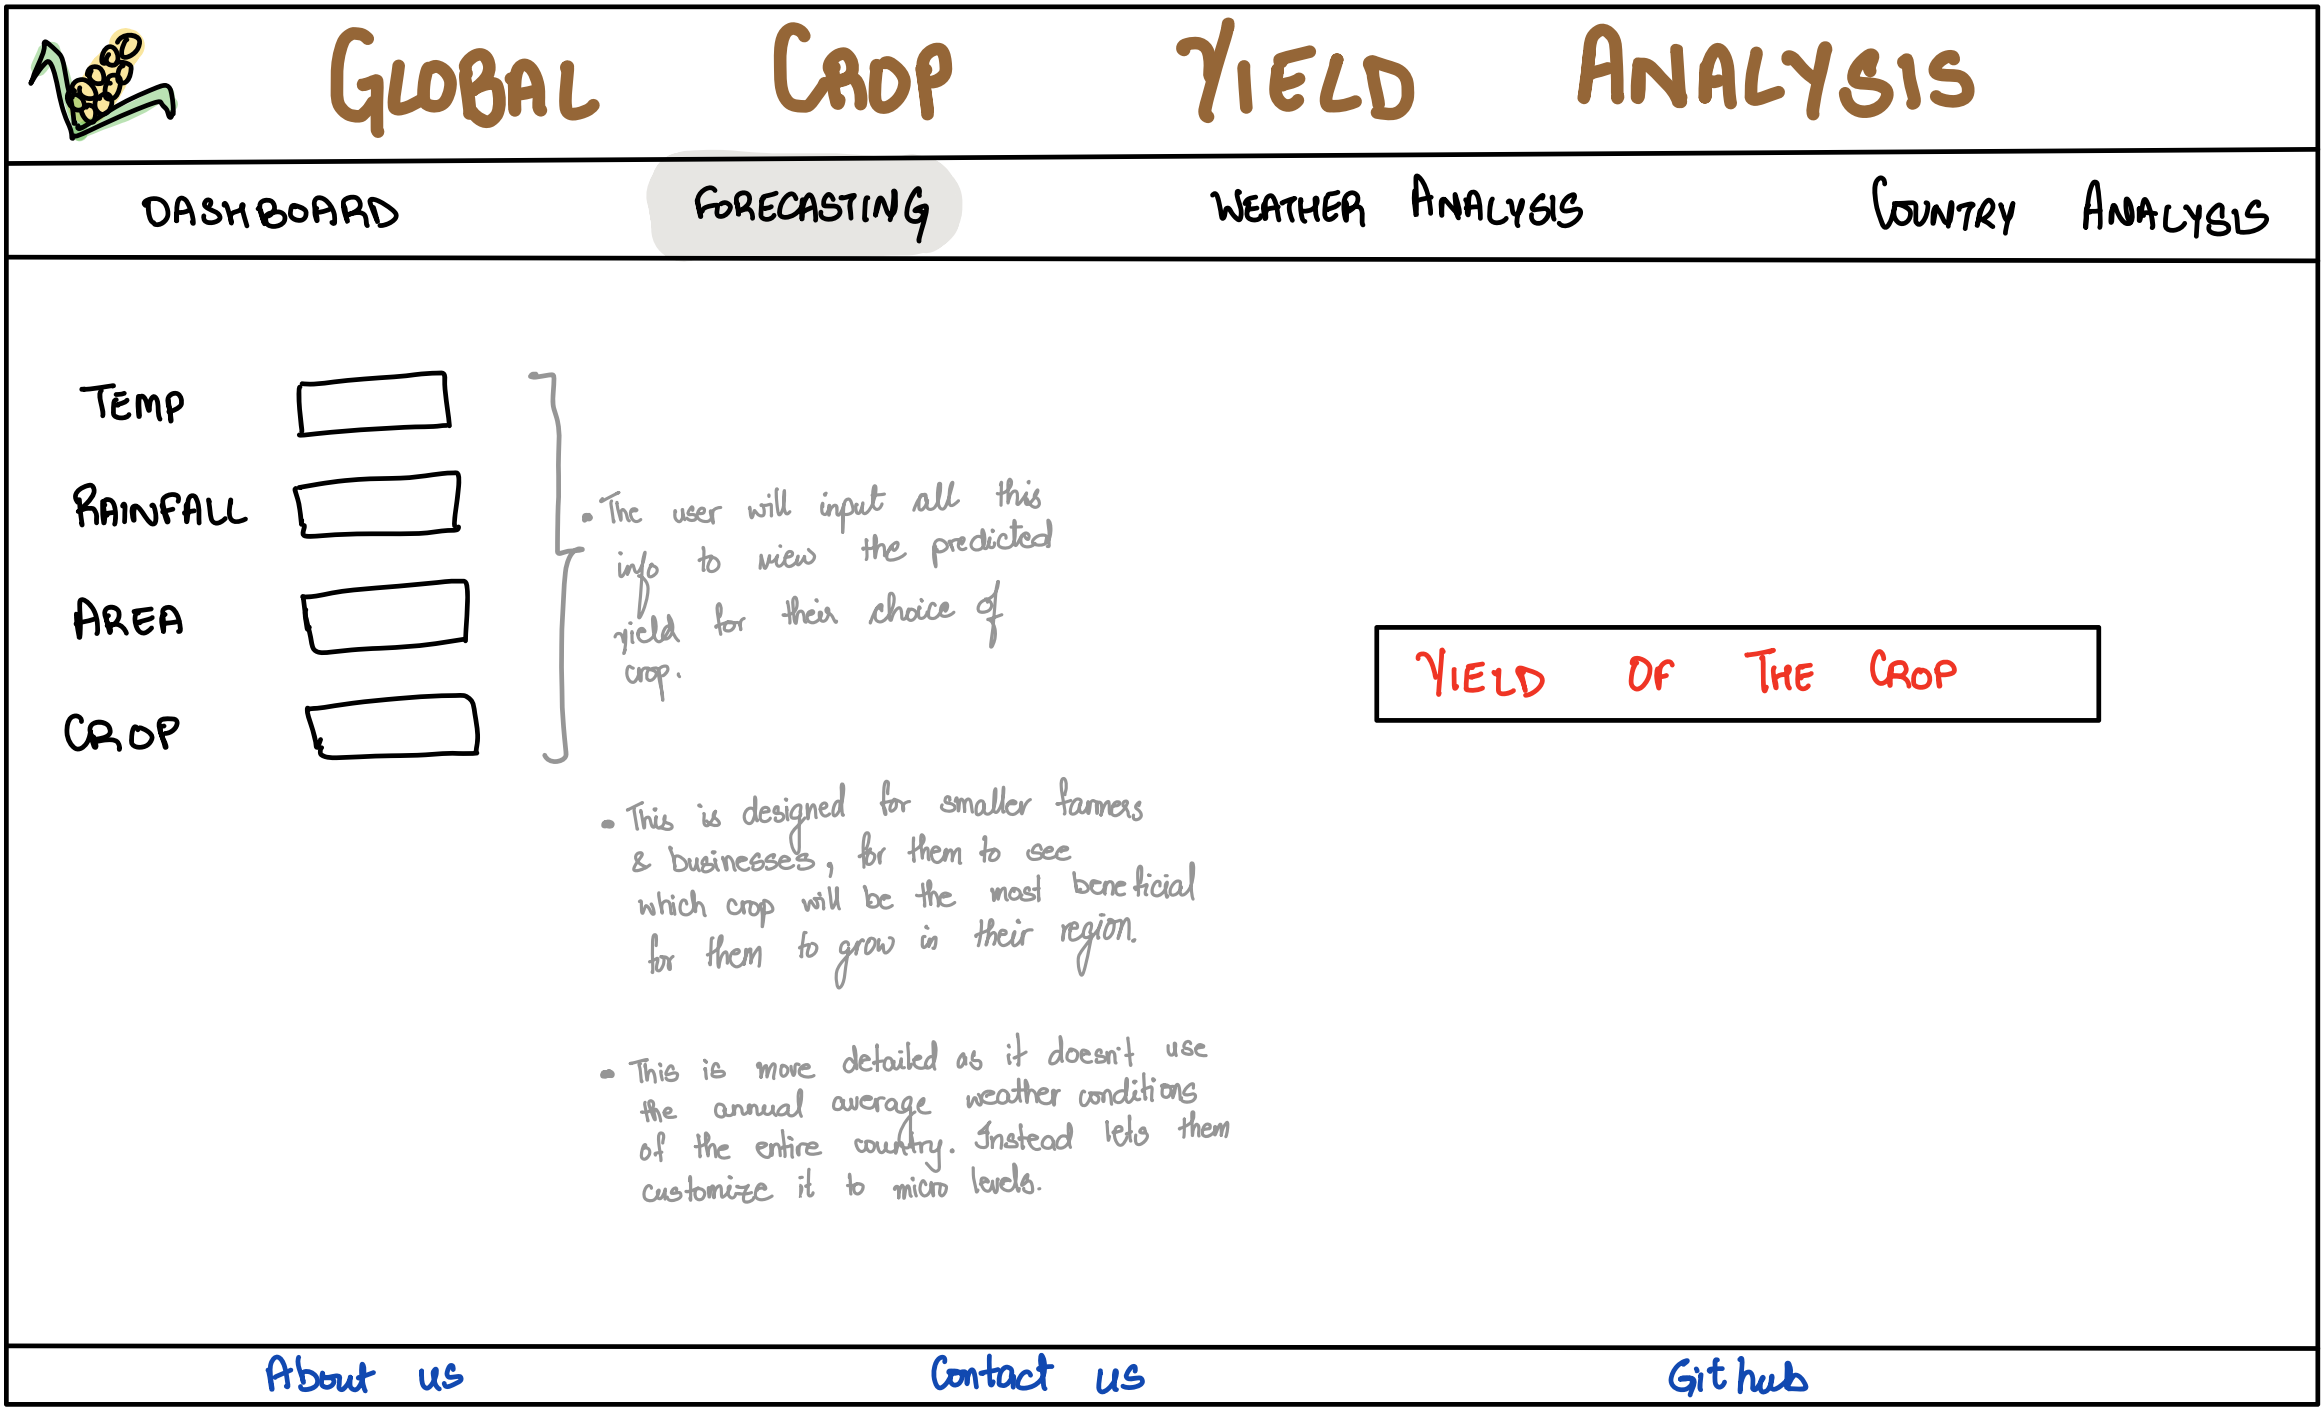 GLOBAL CROP YIELD ANALYSIS
DASHBOARD FORECASTING WEATHER ANALYSIS COUNTRY ANALYSIS
TEMP
RAINFALL
AREA
CROP
• The user will input all this
info to view the predicted
yield for their choice of
crop.
YIELD OF THE CROP
• This is designed for smaller farmers
& businesses, for them to see
which crop will be the most beneficial
for them to grow in their region.
• This is more detailed as it doesn't use
the annual average weather conditions
of the entire country. Instead lets them
customize it to micro levels.
About us Contact us Github